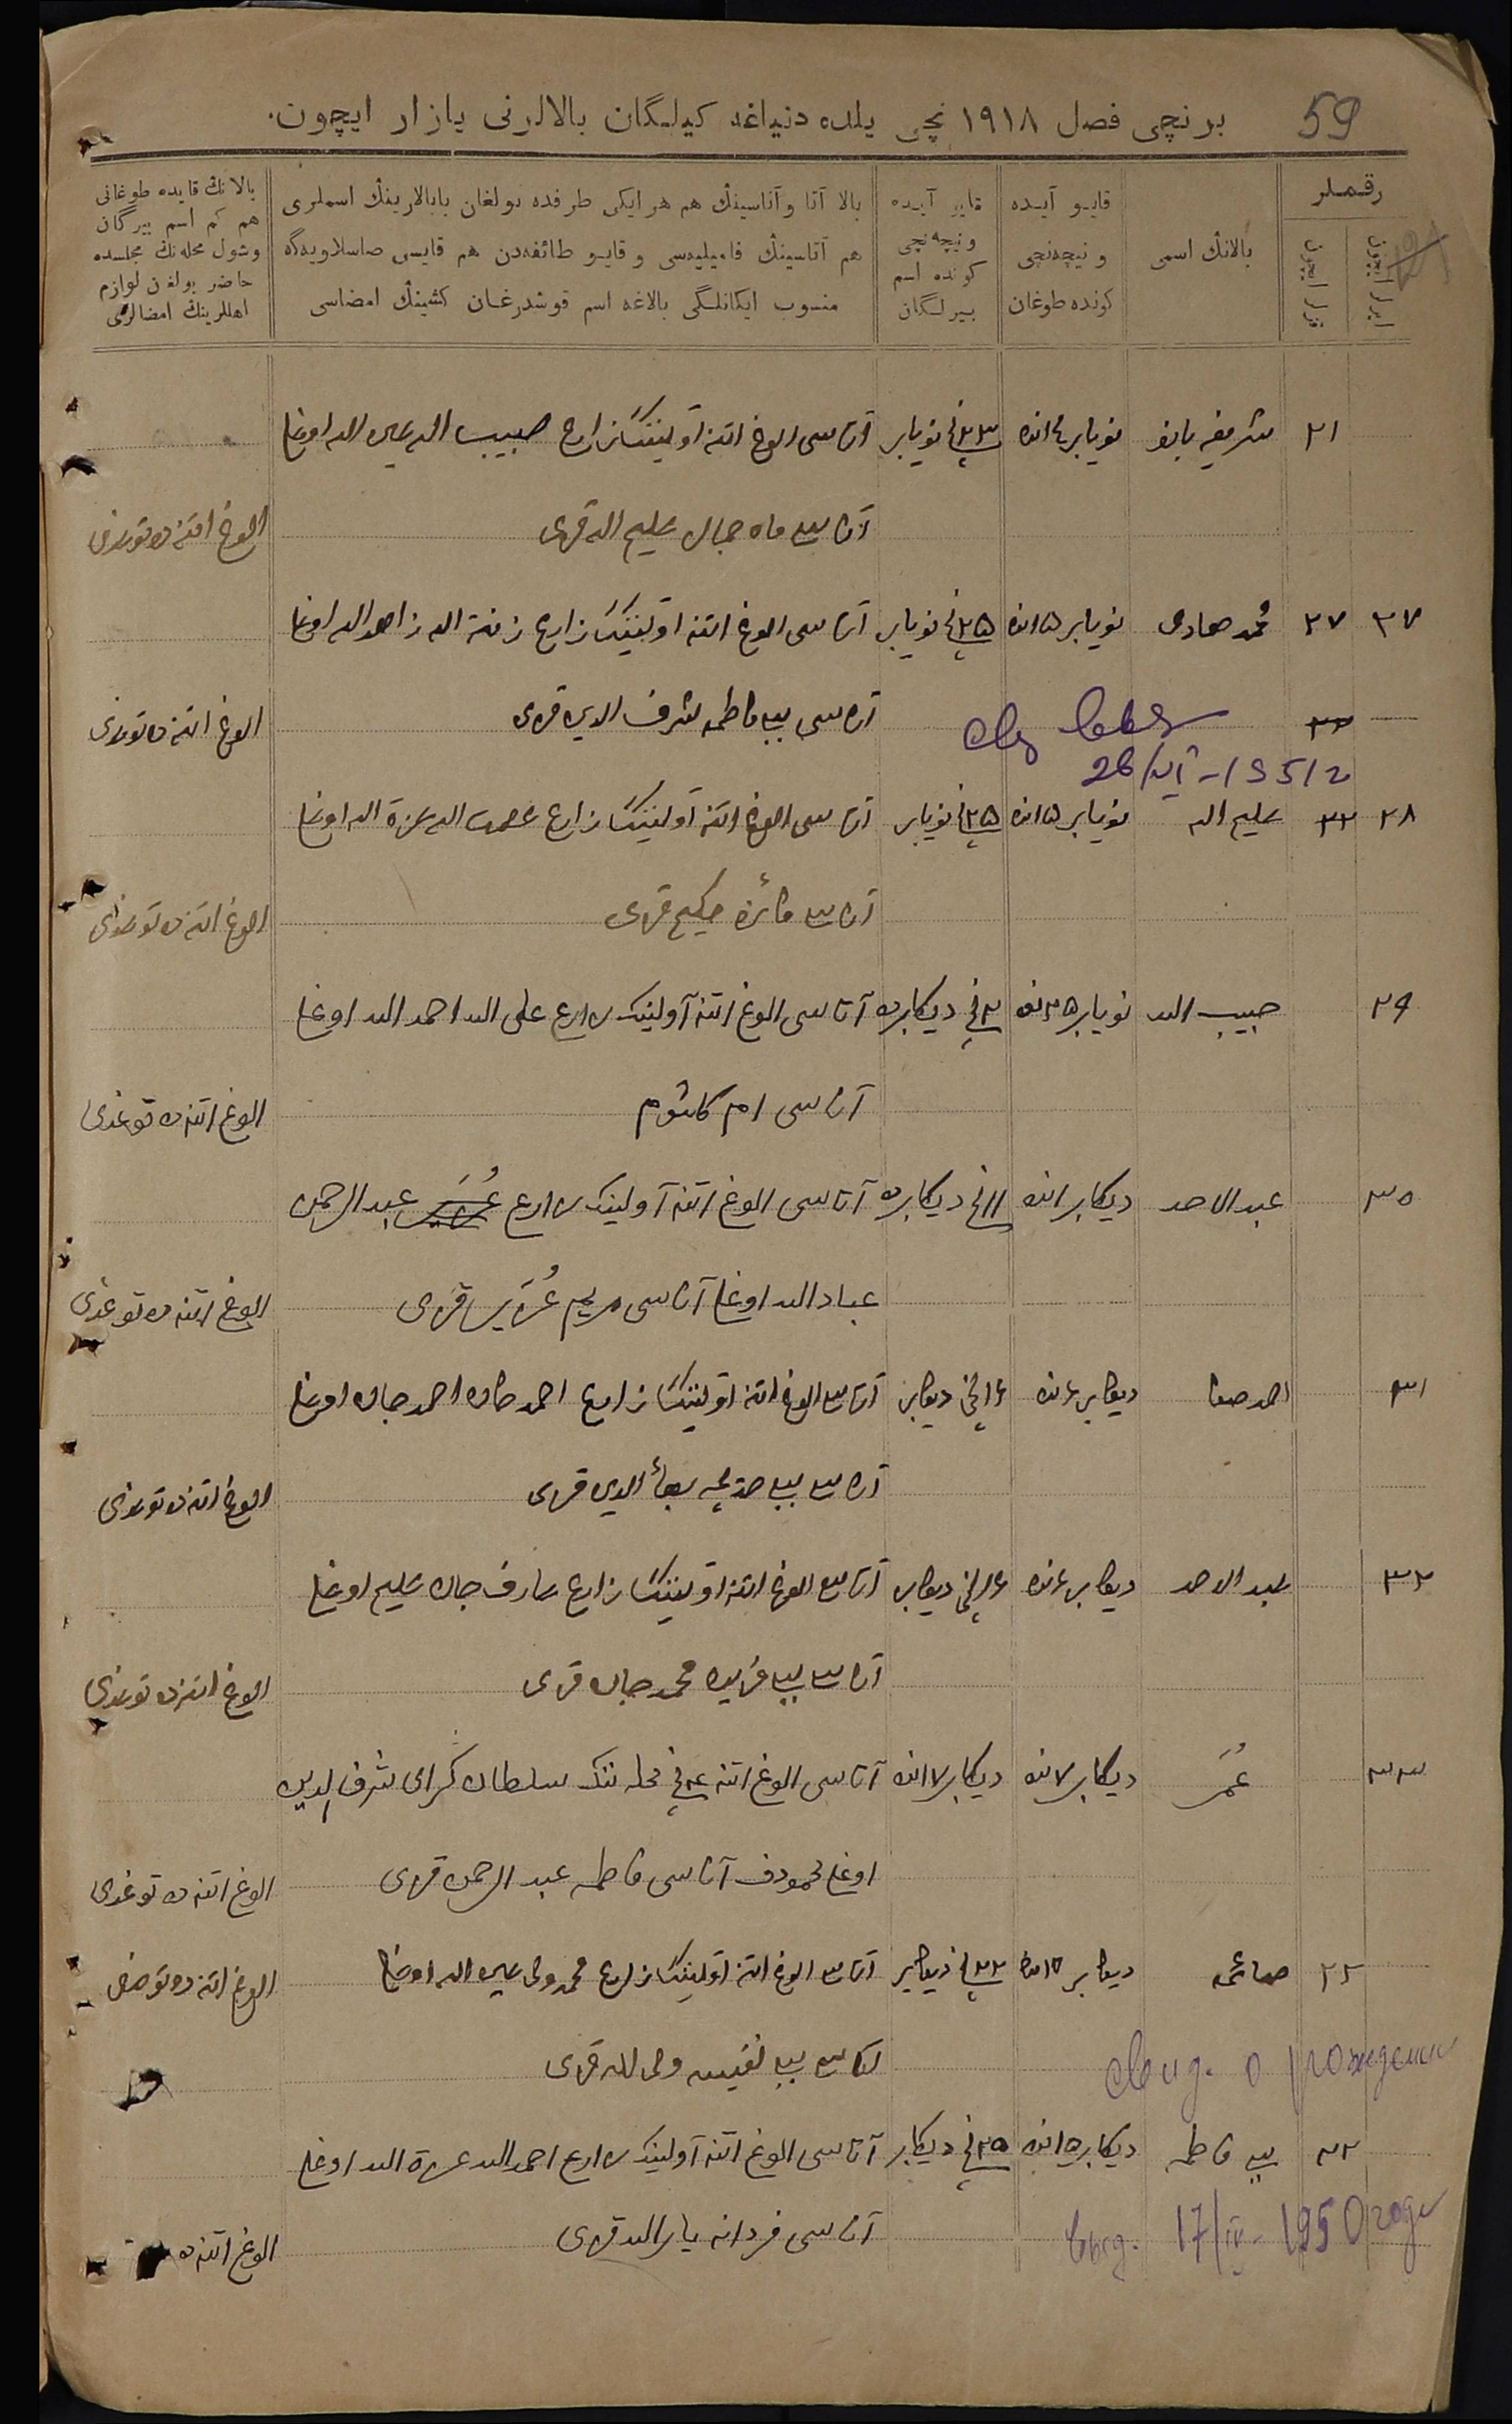 59
برنچی فصل ١٩١٨ نچی یلده دنیاغه کیلگان بالالرنی یازار ایچون.
رقملر
ایرلر ایچون
قزلر ایچون
بالانڭ اسمی
قایو آیده ونیچه‌نچی کونده طوغان
قایو آیده ونیچه‌نچی کونده اسم بیرلگان
بالا آتا وآناسینڭ هم هر ایکی طرفده بولغان بابالارینڭ اسملری
هم آتاسینڭ فامیلیه‌سی وقایو طائفه‌دن هم قایسی صاسلاویه‌گه
منسوب ایکانلگی بالاغه اسم قوشدرغان کشینڭ امضاسی
بالانڭ قایده طوغانی
هم کم اسم بیرگان
وشول محله‌نڭ مجلسده
حاضر بولغان لوازم
اهللرینڭ امضالری
٢١ شریفه بانو نویابر ١٤نده ٢٣نچی نویابر آتاسی الوغ اتنه آولینڭ زارع حبیب الله عین الله اوغلی
آناسی ماه جمال علیم الله قزی الوغ اتنه ده توغدی
٢٧ ٢٧ محمد هادی نویابر ١٥نده ٢٥نچی نویابر آتاسی الوغ اتنه آولینڭ زارع زینة الله زاهد الله اوغلی
آناسی بیبی فاطمه شرف الدین قزی الوغ اتنه ده توغدی
٢٨ علیم الله نویابر ١٥نده ٢٥نچی نویابر آتاسی الوغ اتنه آولینڭ زارع عصمت الله عزة الله اوغلی
آناسی فائزه حکیم قزی الوغ اتنه ده توغدی
٢٩ حبیب الله نویابر ٢٥نده ٢نچی دیکابرده آتاسی الوغ اتنه آولینڭ زارع علی الله احمد الله اوغلی
آناسی ام کلثوم الوغ اتنه ده توغدی
٣٠ عبد الاحد دیکابر ١نده ١١نچی دیکابرده آتاسی الوغ اتنه آولینڭ زارع عبد الرحمن
عباد الله اوغلی آناسی مریم عُزَیر قزی الوغ اتنه ده توغدی
٣١ احمد صفا دیکابر ٤نده ١٤نچی دیکابر آتاسی الوغ اتنه آولینڭ زارع احمد جان احمد جان اوغلی
آناسی بیبی خدیجه بهاء الدین قزی الوغ اتنه ده توغدی
٣٢ عبد الاحد دیکابر ٤نده ١٤نچی دیکابر آتاسی الوغ اتنه آولینڭ زارع عارف جان علیم اوغلی
آناسی بیبی فریده محمد جان قزی الوغ اتنه ده توغدی
٣٣ عُمَر دیکابر ٧نده دیکابر ١٧نده آتاسی الوغ اتنه ٢نچی محله ننڭ سلطان کرای شرف الدین
اوغلی محمودف آناسی فاطمه عبد الرحمن قزی الوغ اتنه ده توغدی
٢٢ صائمه دیکابر ١٢نده ٢٢نچی دیکابر آتاسی الوغ اتنه آولینڭ زارع محمد ولی عین الله اوغلی الوغ اتنه ده توغدی
آناسی بیبی نفیسه ولی الله قزی
свид. о рождении
٢٣ بیبی فاطمه دیکابر ١٥نده ٢٥نچی دیکابر آتاسی الوغ اتنه آولینڭ زارع احمد الله عزة الله اوغلی
آناسی فردانه یار الله قزی الوغ اتنه ده
выд. 17/IV-1950 годи